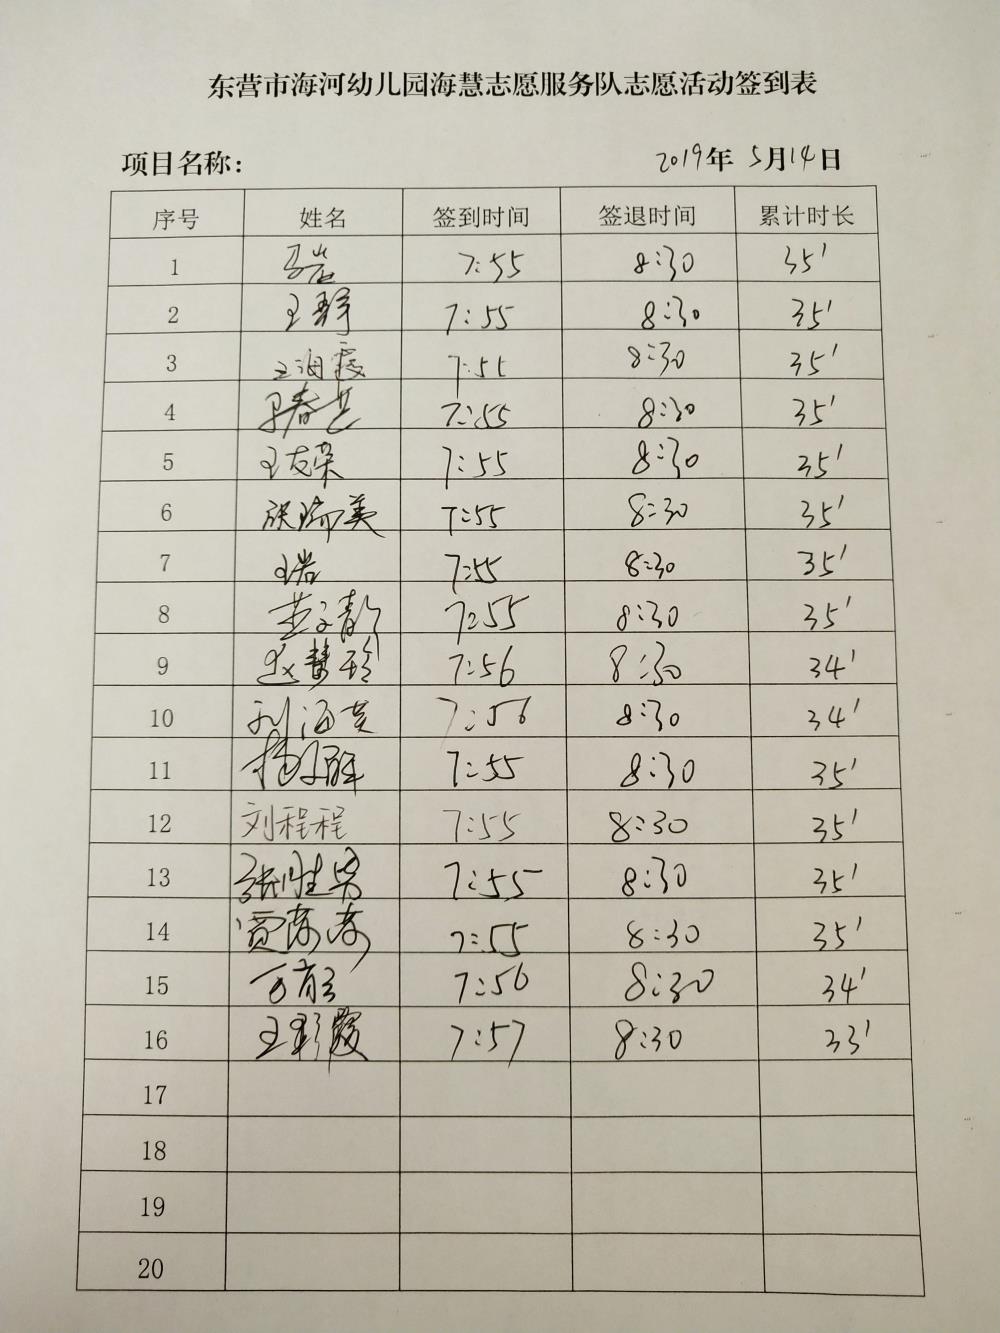 东营市海河幼儿园海慧志愿服务队志愿活动签到表
项目名称: 2019年 5月14日
序号 姓名 签到时间 签退时间 累计时长
1 马岩 7:55 8:30 35'
2 王 7:55 8:30 35'
3 王海霞 7:55 8:30 35'
4 7:55 8:30 35'
5 王友荣 7:55 8:30 35'
6 张瑞美 7:55 8:30 35'
7 7:55 8:30 35'
8 7:55 8:30 35'
9 赵慧玲 7:56 8:30 34'
10 刘海英 7:56 8:30 34'
11 杨 7:55 8:30 35'
12 刘程程 7:55 8:30 35'
13 张胜男 7:55 8:30 35'
14 贾 7:55 8:30 35'
15 7:56 8:30 34'
16 王彩霞 7:57 8:30 33'
17
18
19
20